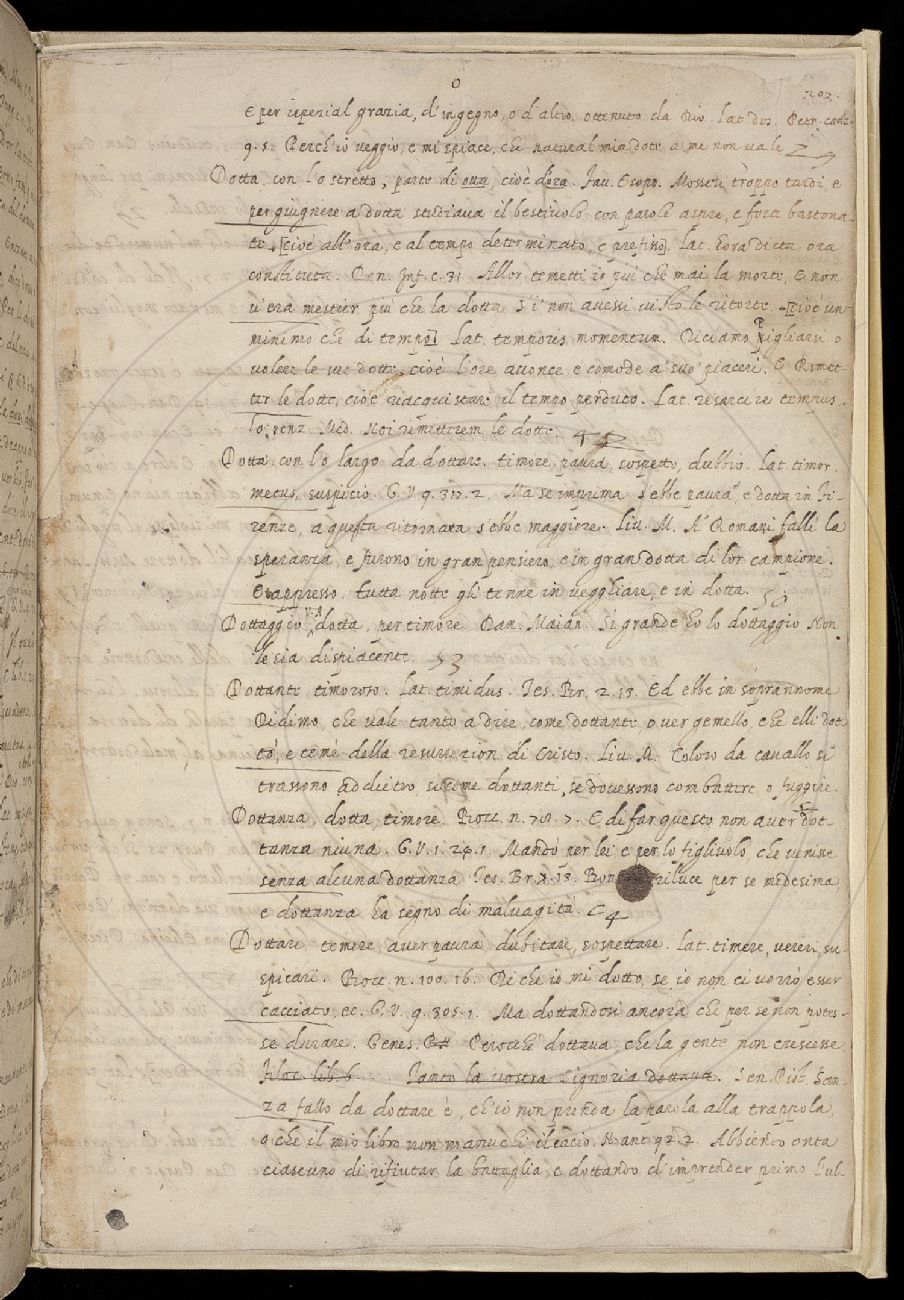 0
202.
E per ispezial grazia, d'ingegno, o d'altro, ottenuto da Dio. Lat. dos. Petr. canz.
9. 5. Perch'io veggio, e mi spiace, che natural mia dote a me non vale
Dotta. con l'o stretto, parte di otta, cioè d'ora. Fav. Esopo. Mosseti troppo tardi, e
per giugnere a dotta studiava il bestiuolo con parole aspre, e forti bastona-
te [cioè all'ora, e al tempo determinato, e prefisso]. Lat. hora dicta, ora
constituta. Dan. Inf. c. 31. Allor temetti io più che mai la morte, E non
v'era mestier più che la dotta S'i' non avessi visto le ritorte. [cioè un
minimo che di tempo] Lat. temporis momentum. Diciamo Pigliarsi o
volere le sue dotte, cioè l'ore avonce e comode a' suo' piaceri. E Rimet-
ter le dotte, cioè racquistare il tempo perduto. Lat. resarcire tempus.
Lorenz. Med. Noi rimetterem le dotte.
Dotta con l'o largo da dottare. timore, paura, sospetto, dubbio. Lat. timor.
metus, suspicio. G. V. 9. 317. 2. Ma se imprima s'ebbe paura, e dotta in Fi-
renze, a questa ritornata s'ebbe maggiore. Liv. M. A' Romani fallì la
speranza, e furono in gran pensiero, e in gran dotta di lor campione.
E appresso. tutta notte gli tenne in vegghiare, e in dotta.
Dottaggio V.A. dotta, per timore. Dan. Maian. Sì grande ho lo dottaggio Non
le sia dispiacente. 53
Dottante timoroso. Lat. timidus. Tes. Br. 2. 13. Ed ebbe in soprannome
Didimo, che vale tanto a dire, come dottante, o ver gemello, che elli dot-
tò, e temè della resurrezion di Cristo. Liv. M. Coloro da cavallo si
trassono addietro, sì come dottanti, se dovessono combattere o fuggire.
Dottanza dotta, timore. Bocc. n. 78. 7. E di far questo non aver dot-
tanza niuna. G. V. 1. 24. 1. Mandò per lei e per lo figliuolo, che venisse
senza alcuna dottanza Tes. Br. 7. 13. riluce per se medesima,
e dottanza ha segno di malvagità. 54
Dottare temere aver paura dubitare, sospettare. Lat. timere, vereri, su-
spicari. Bocc. n. 100. 16. Di che io mi dotto, se io non ci vorrò esser
cacciato, ec. G. V. 9. 305. 1. Ma dottandosi ancora che per se non potes-
se durare. Genes. Perocchè dottava, che la gente non crescesse
Filoc. lib. 6. Tanto la vostra Signoria dottava. Sen. Pist. San-
za fallo da dottare è, ch'io non prenda la parola alla trappola,
o che il mio libro non manuchi il cacio. M. ant. 92. 2. Abbiendo onta
ciascuno di rifiutar la battaglia, e dottando d'imprender primo l'ul-